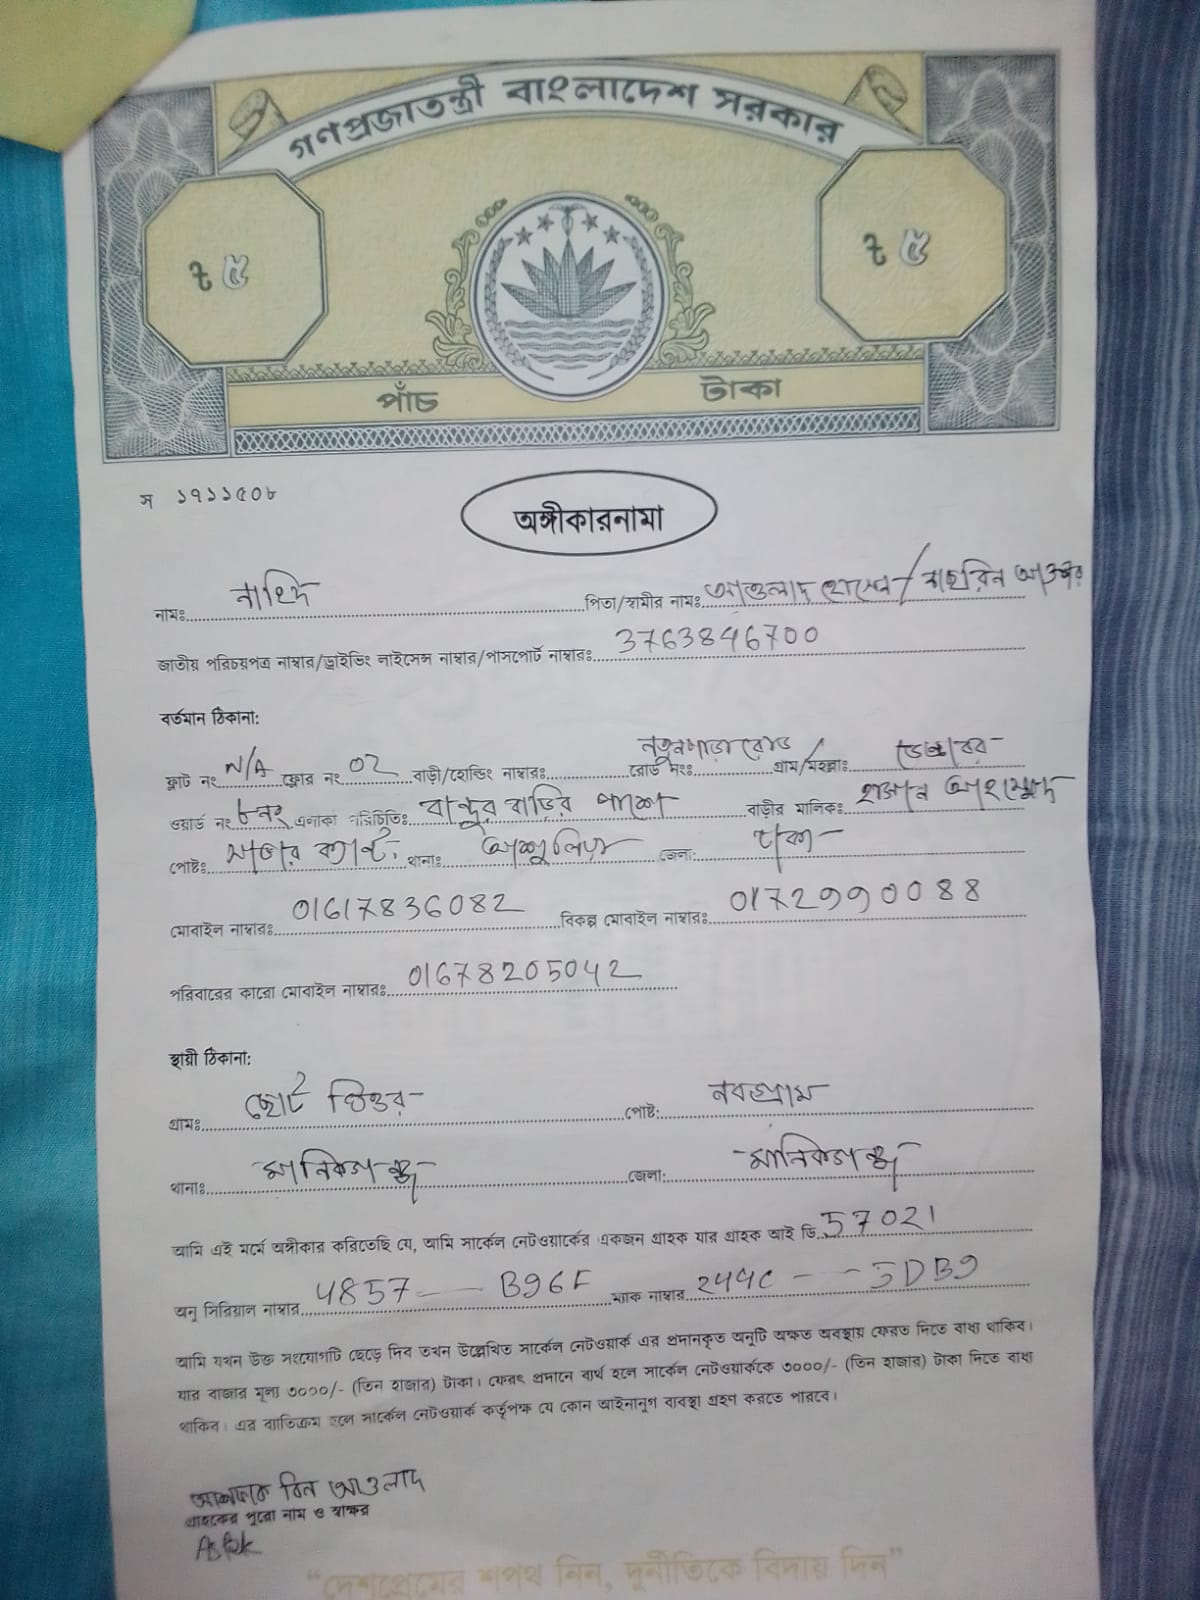 গণপ্রজাতন্ত্রী বাংলাদেশ সরকার
৳ ৫ ৳ ৫
পাঁচ টাকা
স ১৭১১৫০৮
অঙ্গীকারনামা
নামঃ পিতা/স্বামীর নামঃ আওলাদ হোসেন /
জাতীয় পরিচয়পত্র নাম্বার/ড্রাইভিং লাইসেন্স নাম্বার/পাসপোর্ট নাম্বারঃ 3763846700
বর্তমান ঠিকানা:
ফ্লাট নং N/A ফ্লোর নং 02 বাড়ী/হোল্ডিং নাম্বারঃ রোড নংঃ নতুনপাড়া রোড গ্রাম/মহল্লাঃ
ওয়ার্ড নং ৮নং এলাকা পরিচিতিঃ বাড়ির পাশে বাড়ীর মালিকঃ হাসান আহম্মেদ
পোষ্টঃ থানাঃ আশুলিয়া জেলা: ঢাকা
মোবাইল নাম্বারঃ 01617836082 বিকল্প মোবাইল নাম্বারঃ 01729990088
পরিবারের কারো মোবাইল নাম্বারঃ 01678205042
স্থায়ী ঠিকানা:
গ্রামঃ ছোট পোষ্ট: নবগ্রাম
থানাঃ মানিকগঞ্জ জেলা: মানিকগঞ্জ
আমি এই মর্মে অঙ্গীকার করিতেছি যে, আমি সার্কেল নেটওয়ার্কের একজন গ্রাহক যার গ্রাহক আই ডি 57021
অনু সিরিয়াল নাম্বার 4857 --- B96F ম্যাক নাম্বার 249C --- 5DB9
আমি যখন উক্ত সংযোগটি ছেড়ে দিব তখন উল্লেখিত সার্কেল নেটওয়ার্ক এর প্রদানকৃত অনুটি অক্ষত অবস্থায় ফেরত দিতে বাধ্য থাকিব।
যার বাজার মূল্য ৩০০০/- (তিন হাজার) টাকা। ফেরৎ প্রদানে ব্যর্থ হলে সার্কেল নেটওয়ার্ককে ৩০০০/- (তিন হাজার) টাকা দিতে বাধ্য
থাকিব। এর ব্যতিক্রম হলে সার্কেল নেটওয়ার্ক কর্তৃপক্ষ যে কোন আইনানুগ ব্যবস্থা গ্রহণ করতে পারবে।
বিন আওলাদ
গ্রাহকের পুরো নাম ও স্বাক্ষর
“দেশপ্রেমের শপথ নিন, দুর্নীতিকে বিদায় দিন”